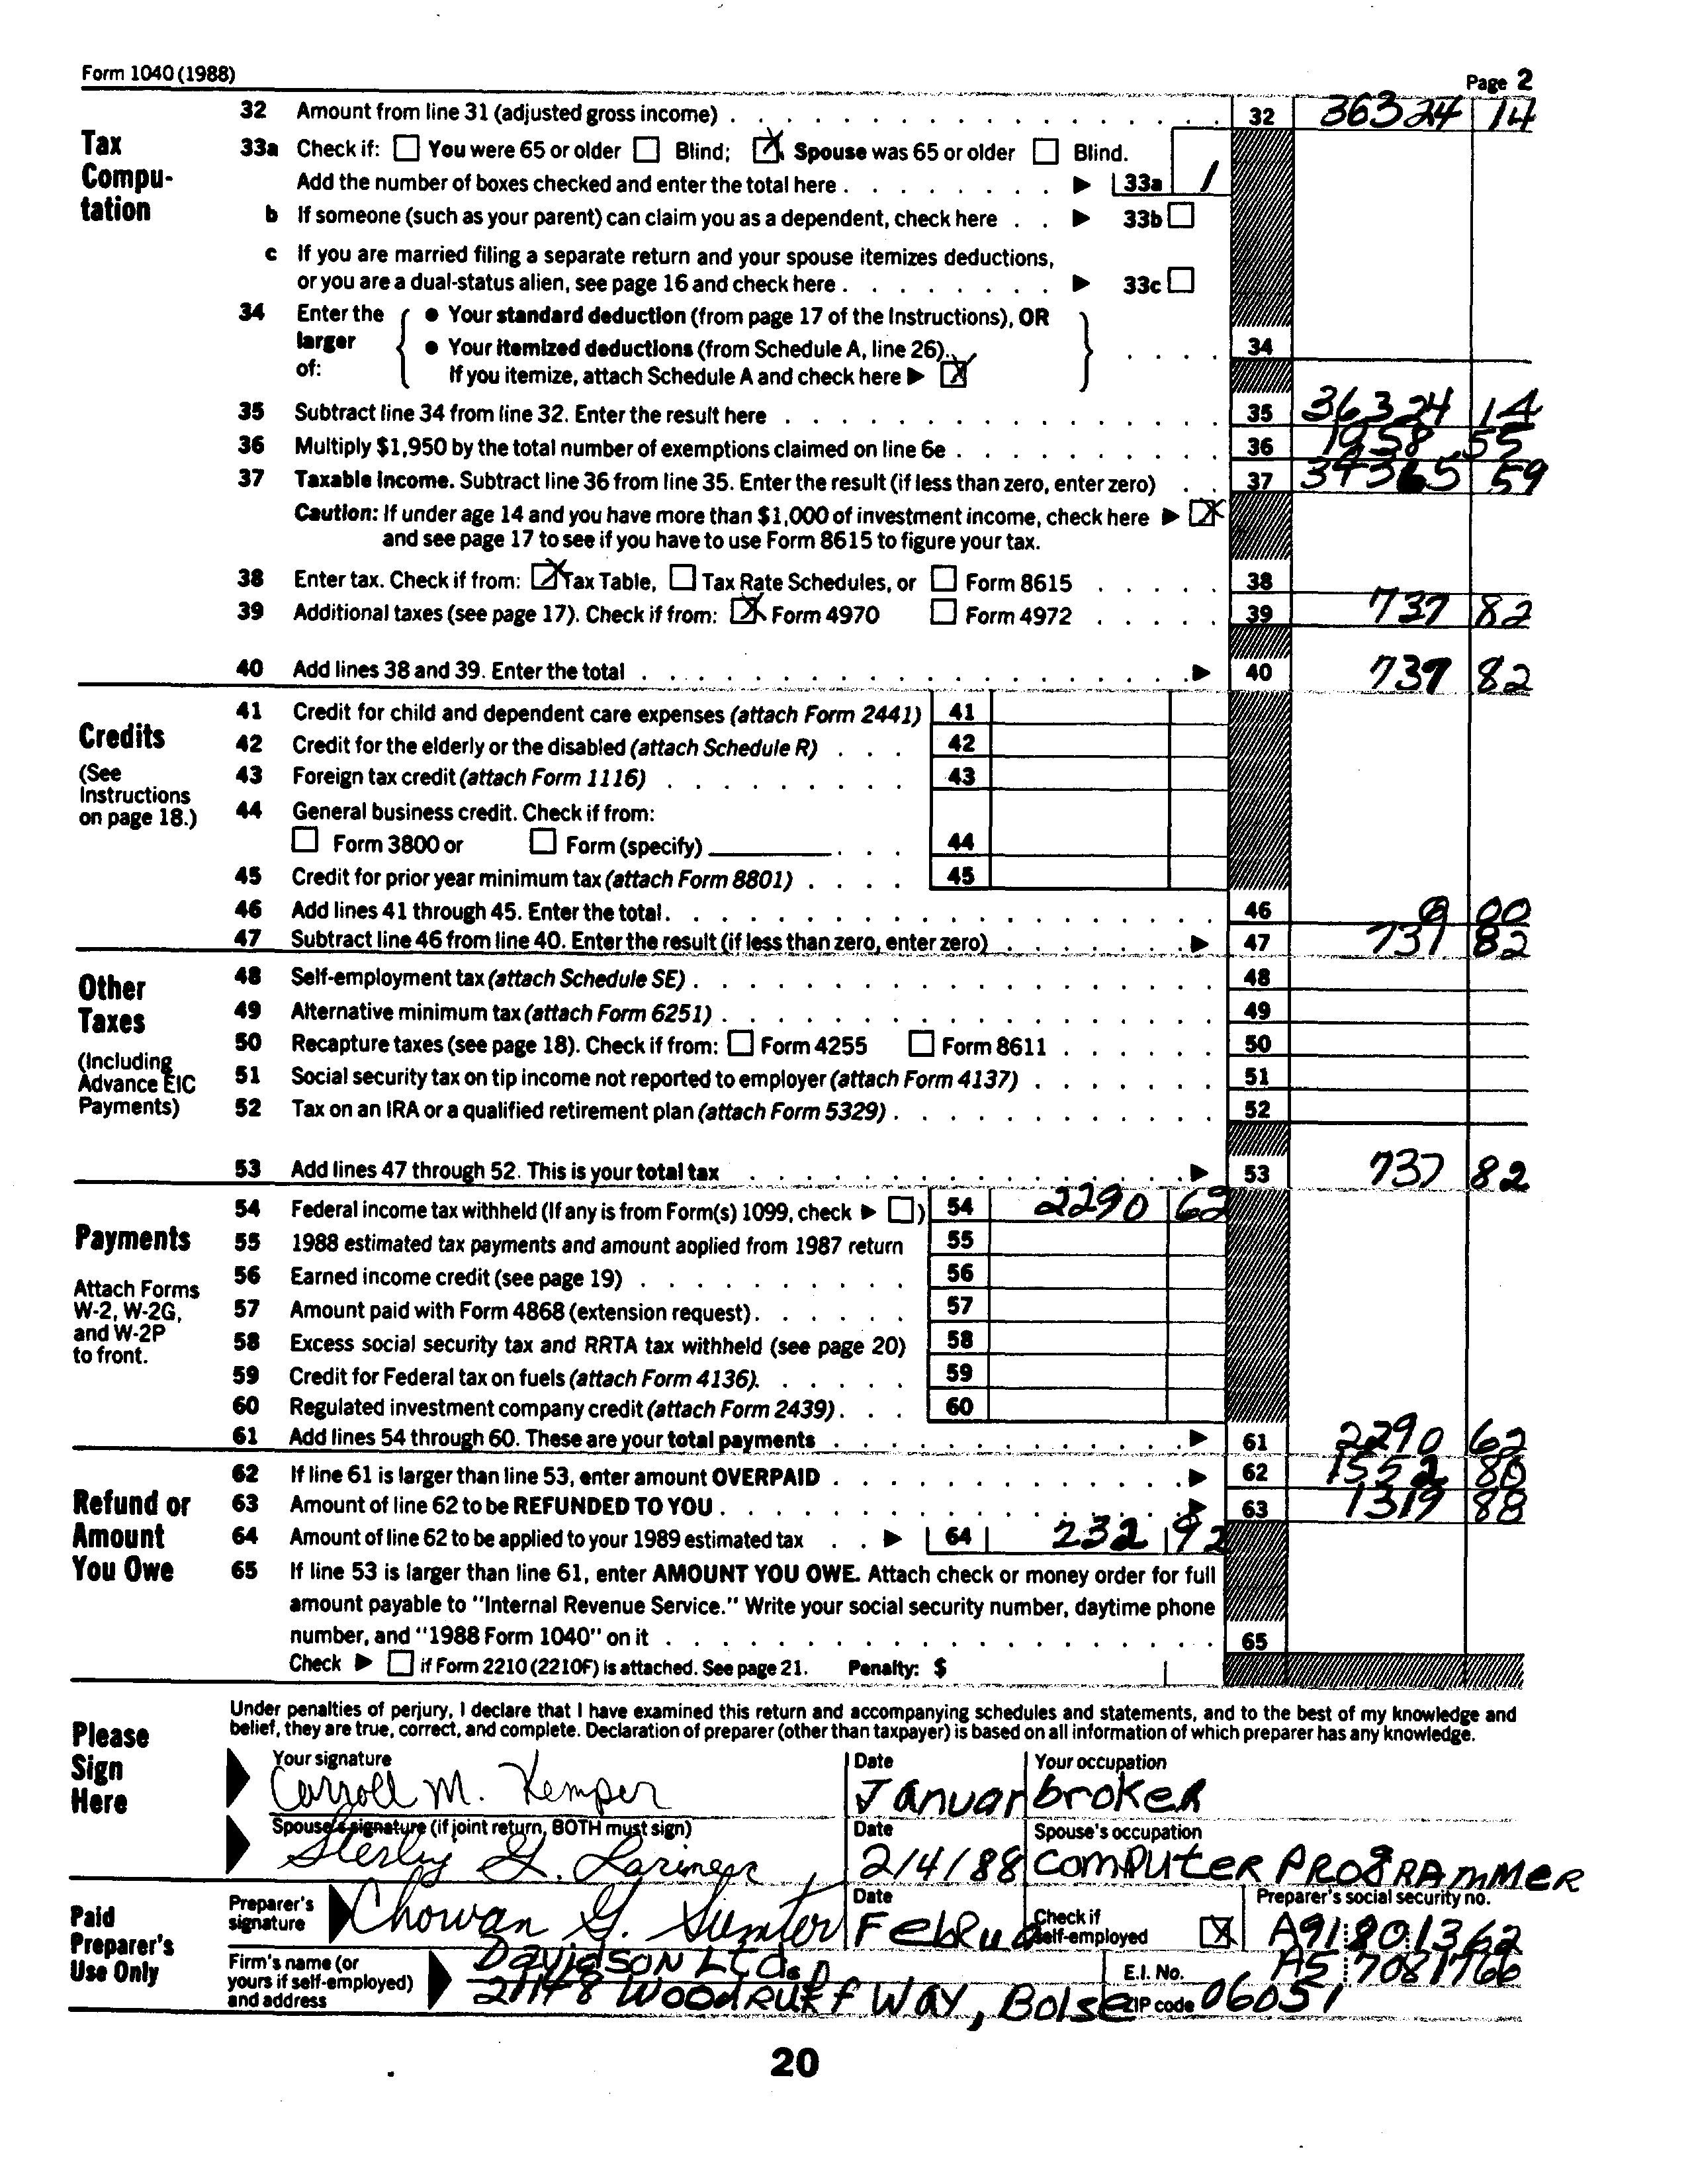 Form 1040 (1988)
Page 2
Tax Computation
32 Amount from line 31 (adjusted gross income) 32 36324 14
33a Check if: You were 65 or older Blind; X Spouse was 65 or older Blind.
Add the number of boxes checked and enter the total here 33a 1
b If someone (such as your parent) can claim you as a dependent, check here 33b
c If you are married filing a separate return and your spouse itemizes deductions,
or you are a dual-status alien, see page 16 and check here 33c
34 Enter the larger of:
• Your standard deduction (from page 17 of the Instructions), OR
• Your itemized deductions (from Schedule A, line 26). 34
If you itemize, attach Schedule A and check here X
35 Subtract line 34 from line 32. Enter the result here 35 36324 14
36 Multiply $1,950 by the total number of exemptions claimed on line 6e 36 1958 55
37 Taxable income. Subtract line 36 from line 35. Enter the result (if less than zero, enter zero) 37 34365 59
Caution: If under age 14 and you have more than $1,000 of investment income, check here X
and see page 17 to see if you have to use Form 8615 to figure your tax.
38 Enter tax. Check if from: X Tax Table, Tax Rate Schedules, or Form 8615 38
39 Additional taxes (see page 17). Check if from: X Form 4970 Form 4972 39 737 82
40 Add lines 38 and 39. Enter the total 40 737 82
Credits
(See Instructions on page 18.)
41 Credit for child and dependent care expenses (attach Form 2441) 41
42 Credit for the elderly or the disabled (attach Schedule R) 42
43 Foreign tax credit (attach Form 1116) 43
44 General business credit. Check if from:
Form 3800 or Form (specify) 44
45 Credit for prior year minimum tax (attach Form 8801) 45
46 Add lines 41 through 45. Enter the total 46 0 00
47 Subtract line 46 from line 40. Enter the result (if less than zero, enter zero) 47 737 82
Other Taxes
(Including Advance EIC Payments)
48 Self-employment tax (attach Schedule SE) 48
49 Alternative minimum tax (attach Form 6251) 49
50 Recapture taxes (see page 18). Check if from: Form 4255 Form 8611 50
51 Social security tax on tip income not reported to employer (attach Form 4137) 51
52 Tax on an IRA or a qualified retirement plan (attach Form 5329) 52
53 Add lines 47 through 52. This is your total tax 53 737 82
Payments
Attach Forms W-2, W-2G, and W-2P to front.
54 Federal income tax withheld (If any is from Form(s) 1099, check ) 54 2290 62
55 1988 estimated tax payments and amount applied from 1987 return 55
56 Earned income credit (see page 19) 56
57 Amount paid with Form 4868 (extension request) 57
58 Excess social security tax and RRTA tax withheld (see page 20) 58
59 Credit for Federal tax on fuels (attach Form 4136) 59
60 Regulated investment company credit (attach Form 2439) 60
61 Add lines 54 through 60. These are your total payments 61 2290 62
Refund or Amount You Owe
62 If line 61 is larger than line 53, enter amount OVERPAID 62 1552 80
63 Amount of line 62 to be REFUNDED TO YOU 63 1319 88
64 Amount of line 62 to be applied to your 1989 estimated tax 64 232 92
65 If line 53 is larger than line 61, enter AMOUNT YOU OWE. Attach check or money order for full
amount payable to "Internal Revenue Service." Write your social security number, daytime phone
number, and "1988 Form 1040" on it 65
Check if Form 2210 (2210F) is attached. See page 21. Penalty: $
Please Sign Here
Under penalties of perjury, I declare that I have examined this return and accompanying schedules and statements, and to the best of my knowledge and
belief, they are true, correct, and complete. Declaration of preparer (other than taxpayer) is based on all information of which preparer has any knowledge.
Your signature Date Your occupation
Carroll M. Kemper Januar broker
Spouse's signature (if joint return, BOTH must sign) Date Spouse's occupation
Sterly G. Lorinegr 2/4/88 computer PROGRAMMER
Paid Preparer's Use Only
Preparer's signature Date Check if self-employed X Preparer's social security no.
Chowan G. Sumter Februa A91801362
Firm's name (or yours if self-employed) and address E.I. No. ZIP code
Davidson Ltd. A5 7081766
21148 Woodruff Way, Boise 06051
20